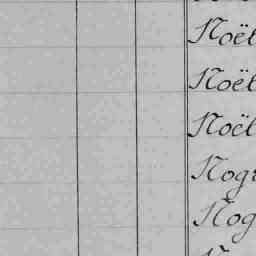 Noël
Noël
Noël
Nogr
Nog